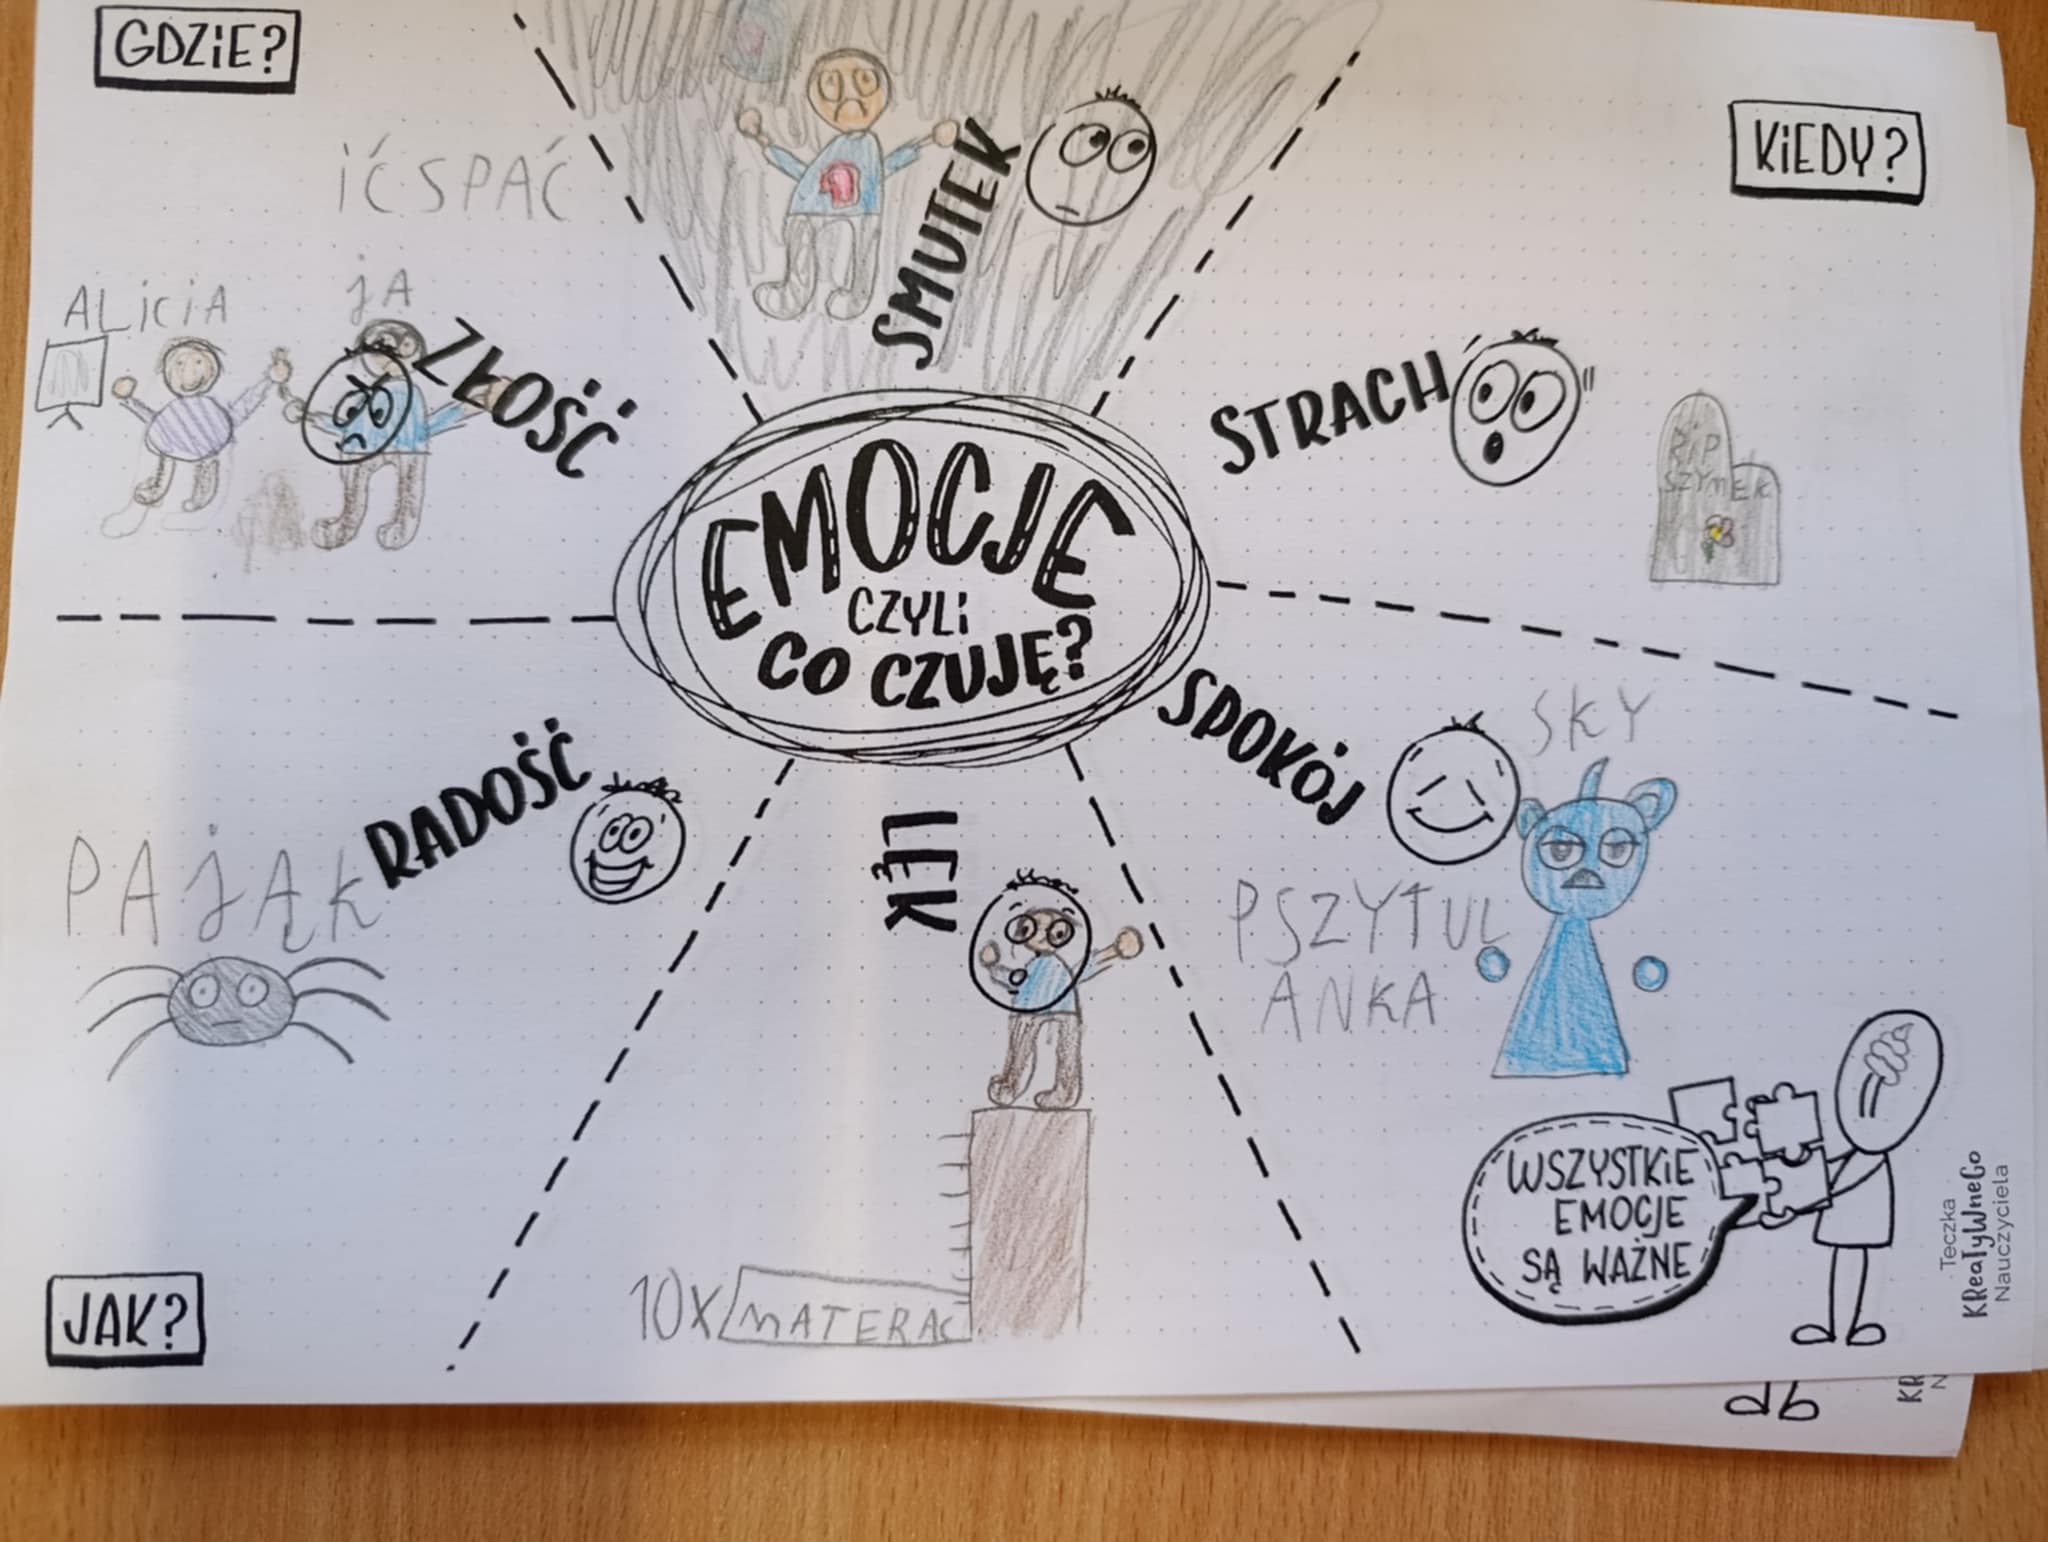 GDZIE?
KIEDY?
IĆ SPAĆ
SMUTEK
ALICIA
JA
ZŁOŚĆ
STRACH
RIP
SZYMEK
EMOCJE
CZYLI
CO CZUJĘ?
RADOŚĆ
PAJĄK
LĘK
SPOKÓJ
SKY
PSZYTUL
ANKA
10X MATERAC
JAK?
WSZYSTKIE
EMOCJE
SĄ WAŻNE
Teczka
KReaTyWneGo
Nauczyciela
KR
N